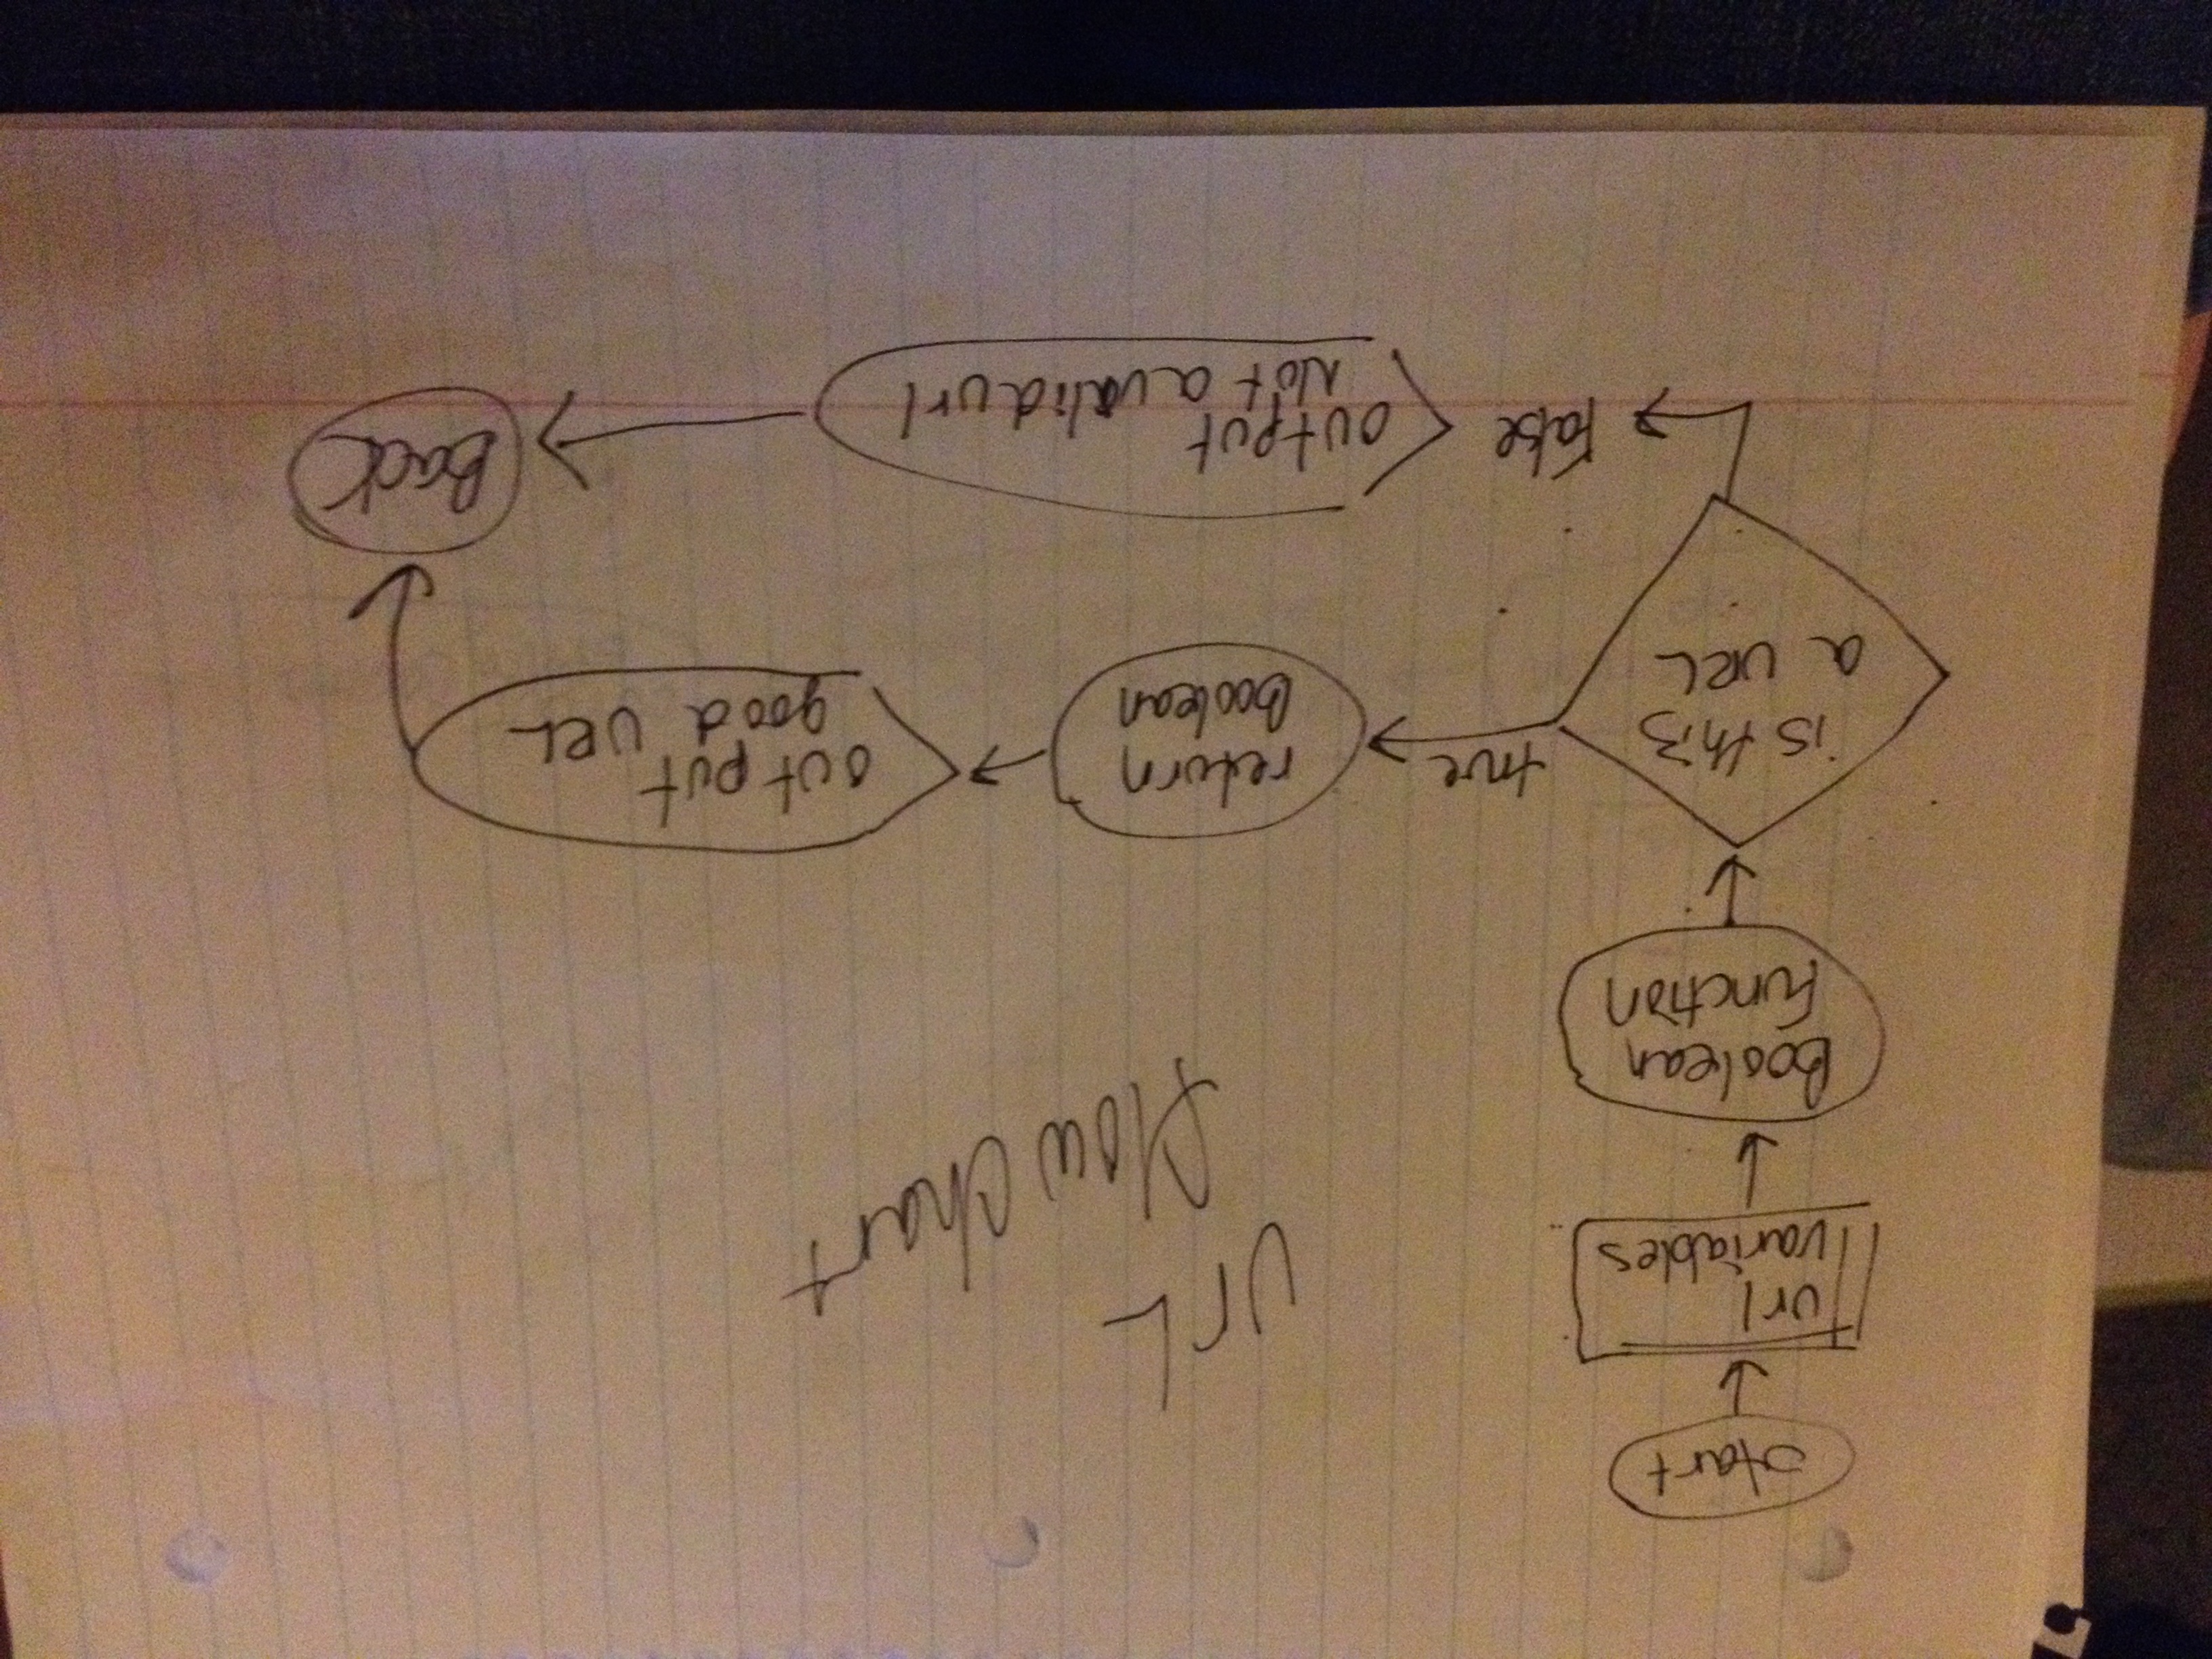 url
Flow chart
start
url
variables
Boolean
Function
is this
a URL
true
return
Boolean
output
good URL
False
output
Not a valid url
Back